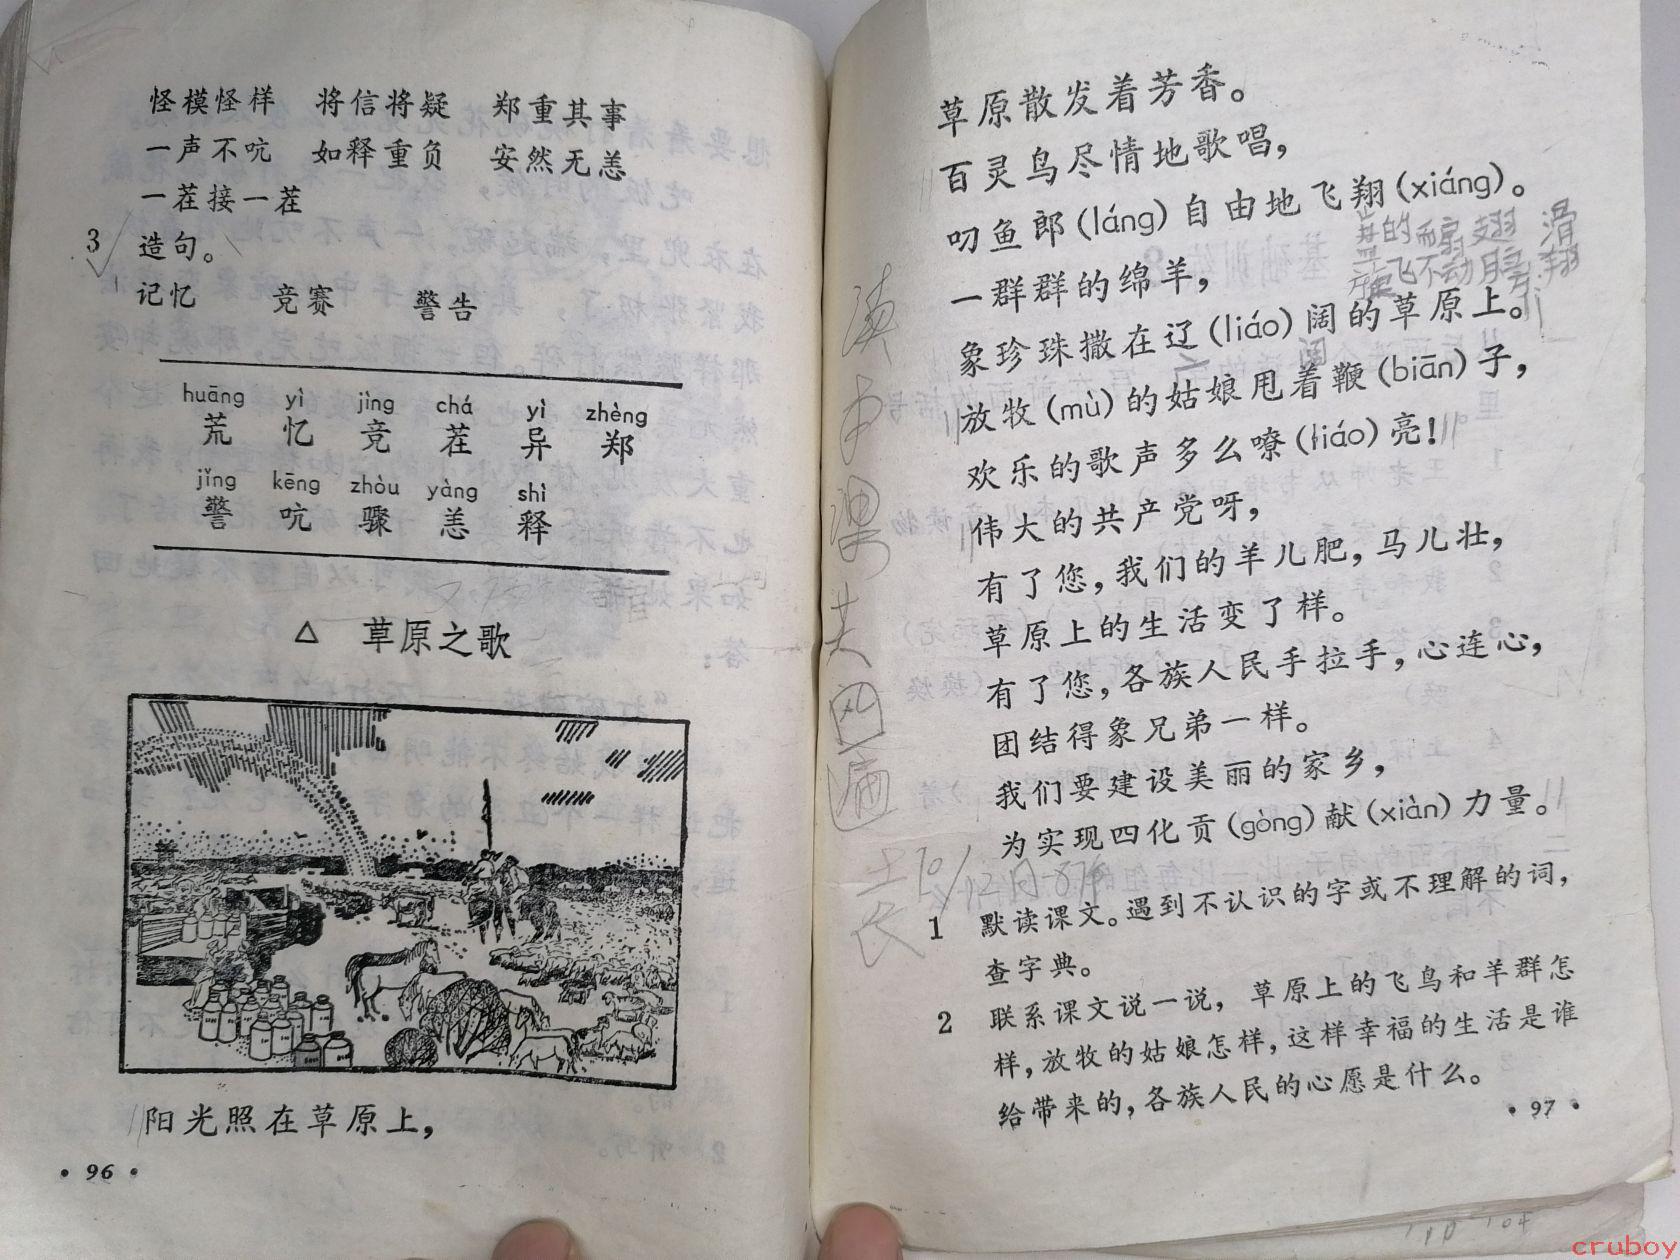 怪模怪样 将信将疑 郑重其事
一声不吭 如释重负 安然无恙
一茬接一茬
3 造句。
记忆 竞赛 警告
huāng yì jìng chá yì zhèng
荒 忆 竞 茬 异 郑
jǐng kēng zhòu yàng shì
警 吭 骤 恙 释
△ 草原之歌
阳光照在草原上，
· 96 ·
草原散发着芳香。
百灵鸟尽情地歌唱，
叨鱼郎(láng)自由地飞翔(xiáng)。
一群群的绵羊，
象珍珠撒在辽(liáo)阔的草原上。
放牧(mù)的姑娘甩着鞭(biān)子，
欢乐的歌声多么嘹(liáo)亮！
伟大的共产党呀，
有了您，我们的羊儿肥，马儿壮，
草原上的生活变了样。
有了您，各族人民手拉手，心连心，
团结得象兄弟一样。
我们要建设美丽的家乡，
为实现四化贡(gòng)献(xiàn)力量。
1 默读课文。遇到不认识的字或不理解的词，
查字典。
2 联系课文说一说，草原上的飞鸟和羊群怎
样，放牧的姑娘怎样，这样幸福的生活是谁
给带来的，各族人民的心愿是什么。
· 97 ·
滑翔
cruboy